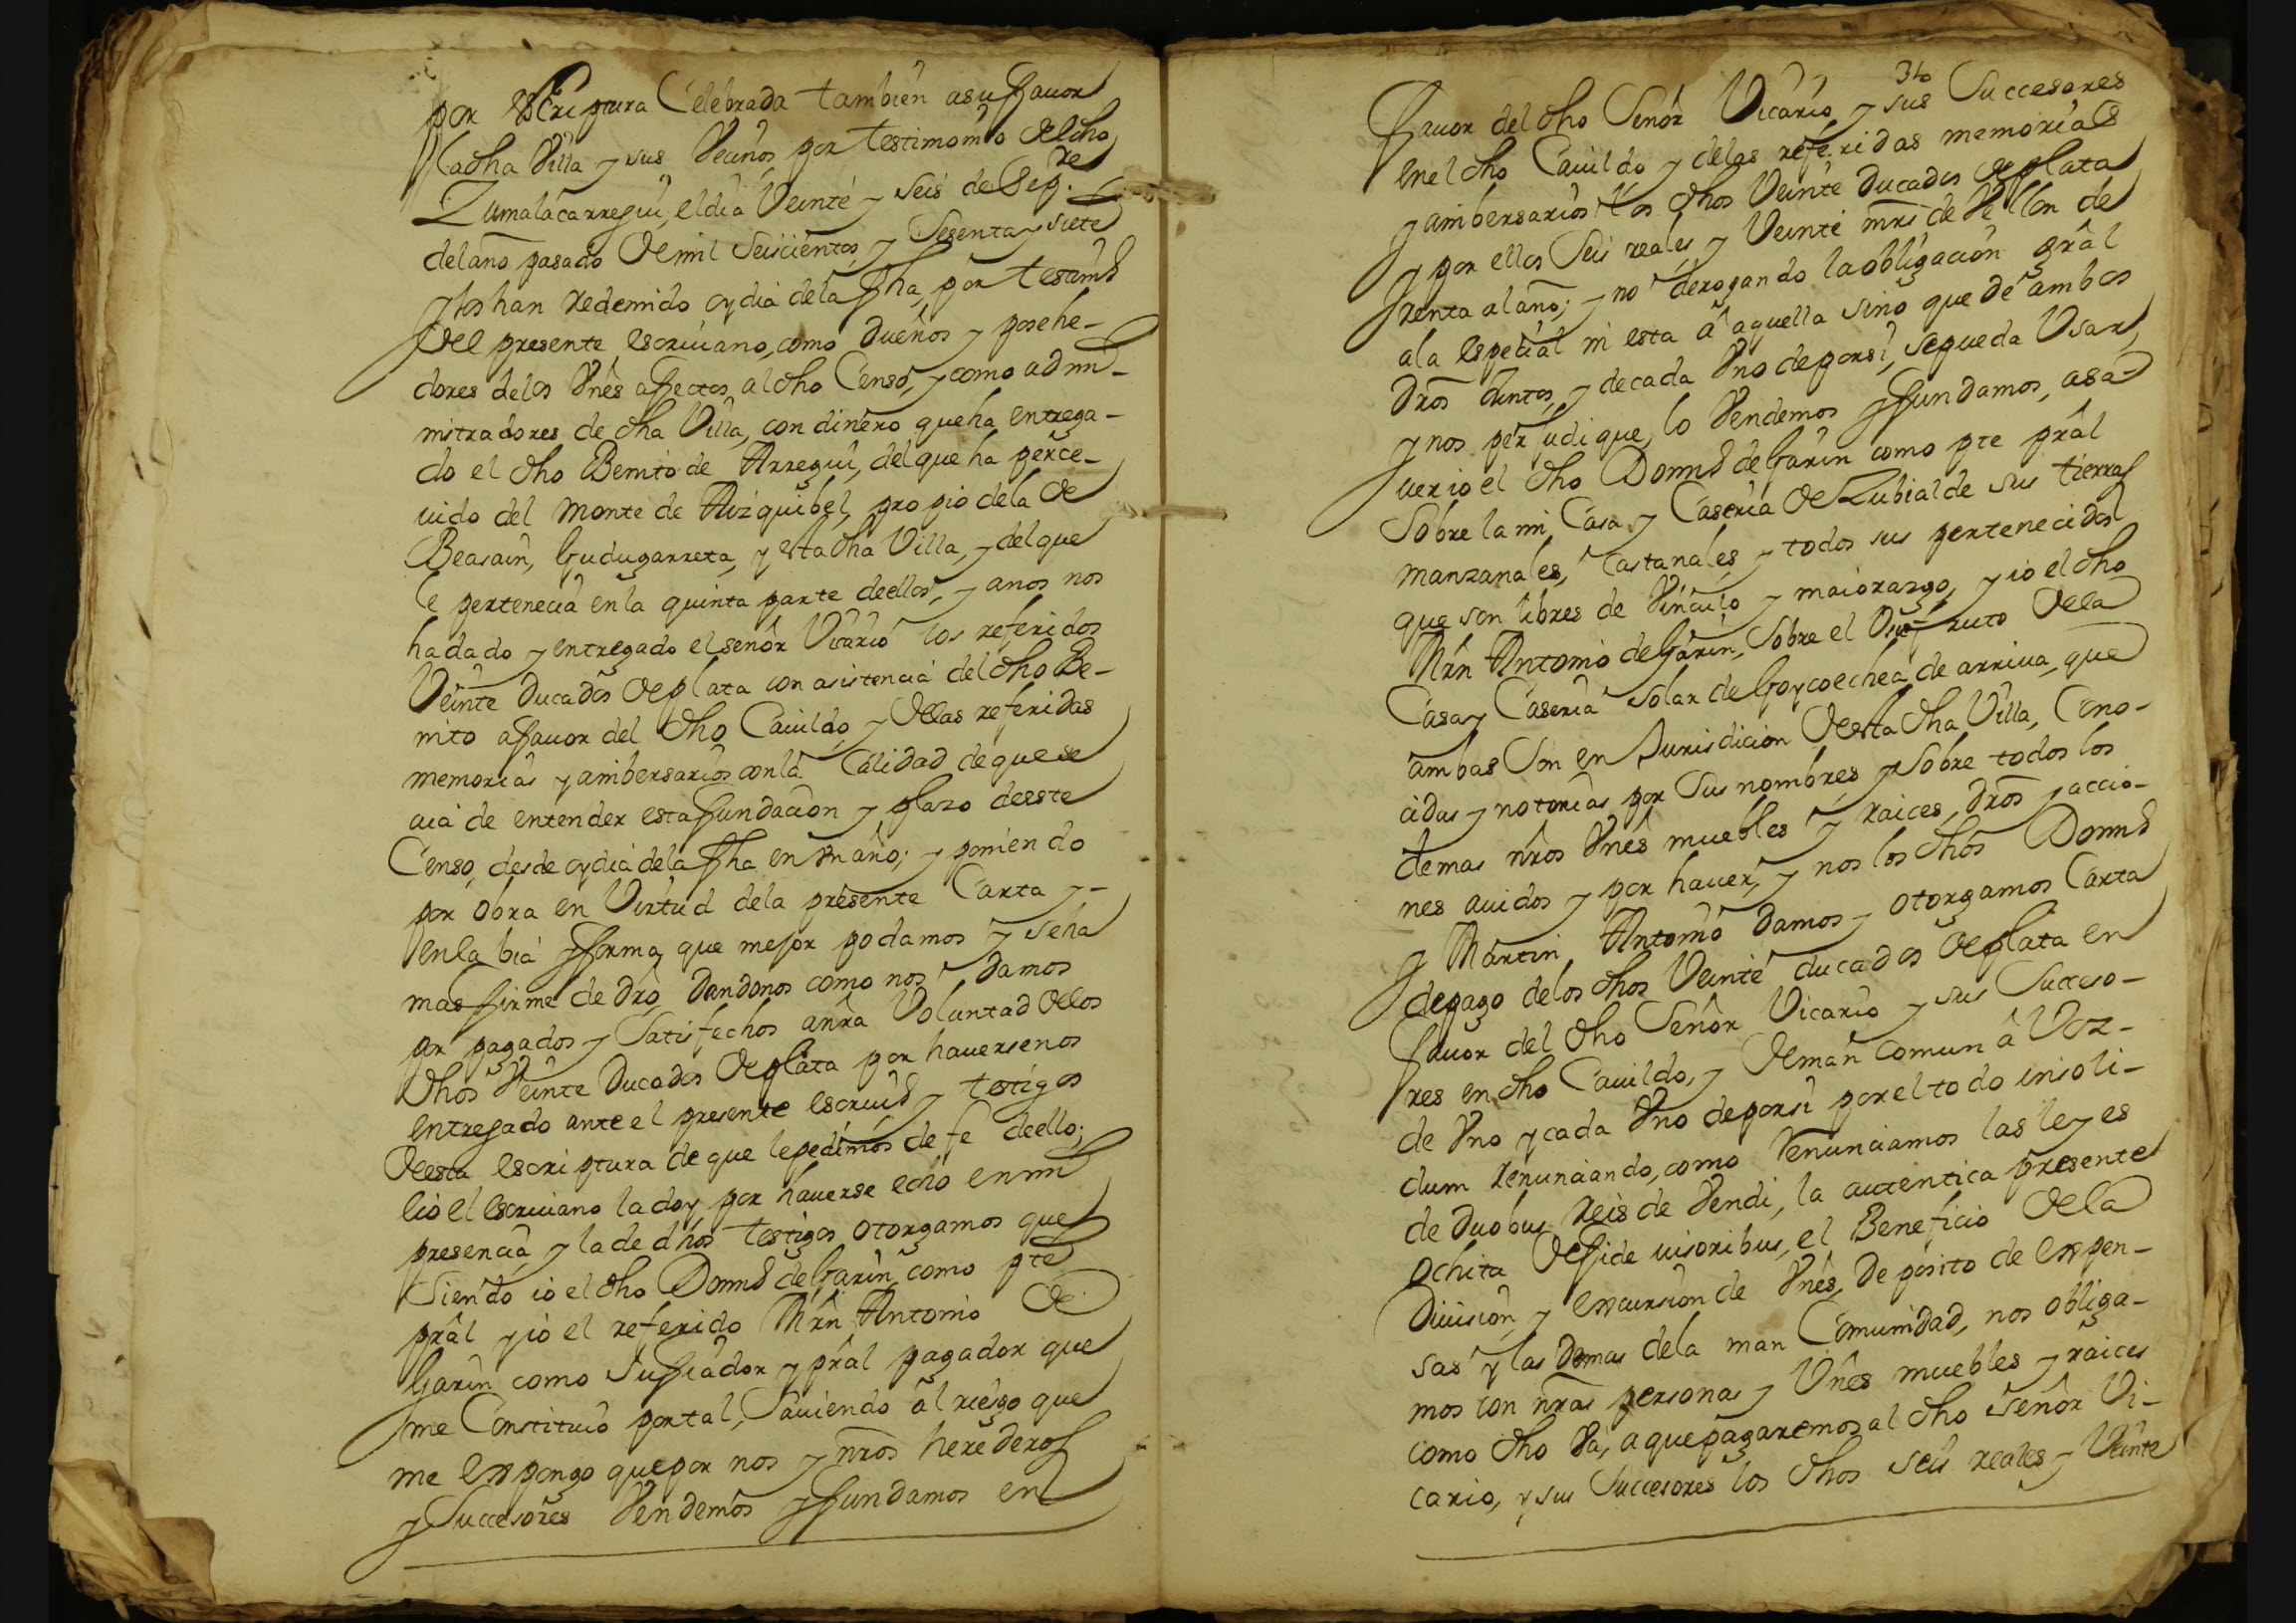 por escriptura Celebrada tambien asu ffauor
la dha Villa y sus Vecinos, por testimonio del dho
Zumalacarregui, el dia Veinte y seis de Sep.re
del año pasado de mil seiscientos, y sesenta y siete
y los han redemido oy dia dela ffha, por testimº
del presente escriuano, como dueños y posehe-
dores delos Vnês affectos, al dho Censo, y como admi-
nistradores de dha Villa, con dinero que ha entrega-
do el dho Benito de Arregui, del que ha perce-
uido del monte de Aizquibel, propio dela de
Beasain, Gudugarreta, y esta dha Villa, y del que
le pertenecia en la quinta parte de ellos, y anos nos
ha dado y entregado el señor Vicario los referidos
Veinte Ducados de plata con asistencia del dho Be-
nito affauor del dho Cauildo, y dlas referidas
memorias y anibersarios con la calidad de que se
aia de entender esta ffundacion y plazo deeste
Censo, desde oy dia dela ffha en Vn año; y poniendo
por obra en Virtud dela presente Carta y-
en la bia y fforma, que mejor podamos y se ha
mas ffirme de drô, Dandonos como nos damos
por pagados y Satisfechos anrâ Voluntad dlos
dhos Veinte Ducados de plata por hauersenos
entregado ante el presente escriuº y testigos
deesta escriptura de que le pedimos de fe deello;
Eio el escriuano la doy, por hauerse echo en mi
presencia, y la de dhos testigos otorgamos que
Siendo io el dho Domº de Garin, como pte
prâl y io el referido Mrn Antonio de
Garin como Sufiador y prâl pagador que
me Constituio por tal, Sauiendo al riesgo que
me expongo que por nos y nrôs herederos
y Succesôres Vendemos y ffundamos en
34
ffauor del dho Señor Vicario y sus Successores
en el dho Cauildo y delas referidas memorias
y anibersarios los dhos Veinte Ducados de plata
y por ellos Seis reales y Veinte mrs de Vellon de
renta al año; y no derogando la obligacion grâl
ala especial ni esta â aquella sino que de ambos
Drôs Juntos, y de cada Vno de por si, se pueda Vsar,
y nos perjudique, lo Vendemos y ffundamos, asa-
uer io el dho Domº de Garin como pte prâl
Sobre la mi Casa y Caseria de Zubialde sus tierras
manzanales, Castanales, y todos sus pertenecidos
que son libres de Vinculo y maiorazgo, y io el dho
Mrn Antonio de Garin, Sobre el Vsufruto dela
Casa y Caseria solar de Goycoechea de arriua, que
ambas Son en Jurisdicion deesta dha Villa, Cono-
cidas y notorias por Sus nombres, y sobre todos los
demas nrôs Vnês muebles y raices, drôs y accio-
nes auidos y por hauer, y nos los dhôs Domº
y Martin Antonio Damos y otorgamos Carta
de pago delos dhos Veinte ducados de plata en
ffauor del dho Señor Vicario y sus Succeso-
res en dho Cauildo, y de man comun â Voz-
de Vno y cada Vno de por si por el todo insoli-
dum renunciando, como renunciamos las leyes
de duobus Reis de Vendi, la autentica presente
ochita de ffide iusoribus, el Beneficio dela
Diuision, y excursion de Vnês, Deposito de expen-
sas y las Demas dela man Comunidad, nos obliga-
mos con nrâs personas y Vnês muebles y raices
como dho Va, a que pagaremos al dho señôr Vi-
cario, y sus Succesores los dhos seis reales y Veinte